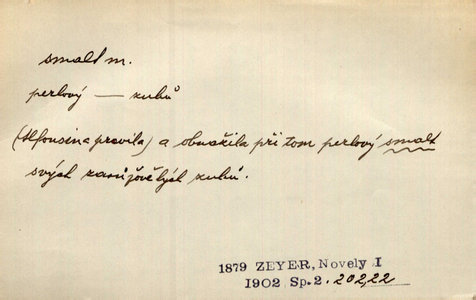 smalt m.
perlový — zubů
(Alfonsina pravila) a obnažila při tom perlový smalt
svých zubů.
1879 ZEYER, Novely I
1902 Sp. 2. 202,22